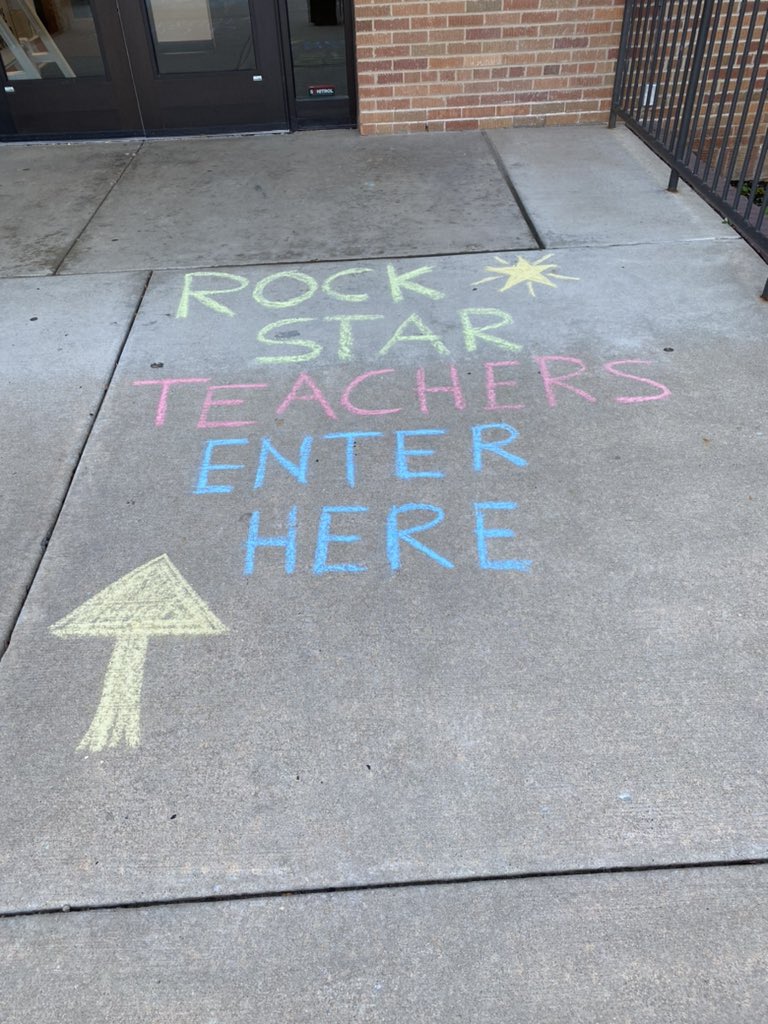 SONITROL
ROCK
STAR
TEACHERS
ENTER
HERE